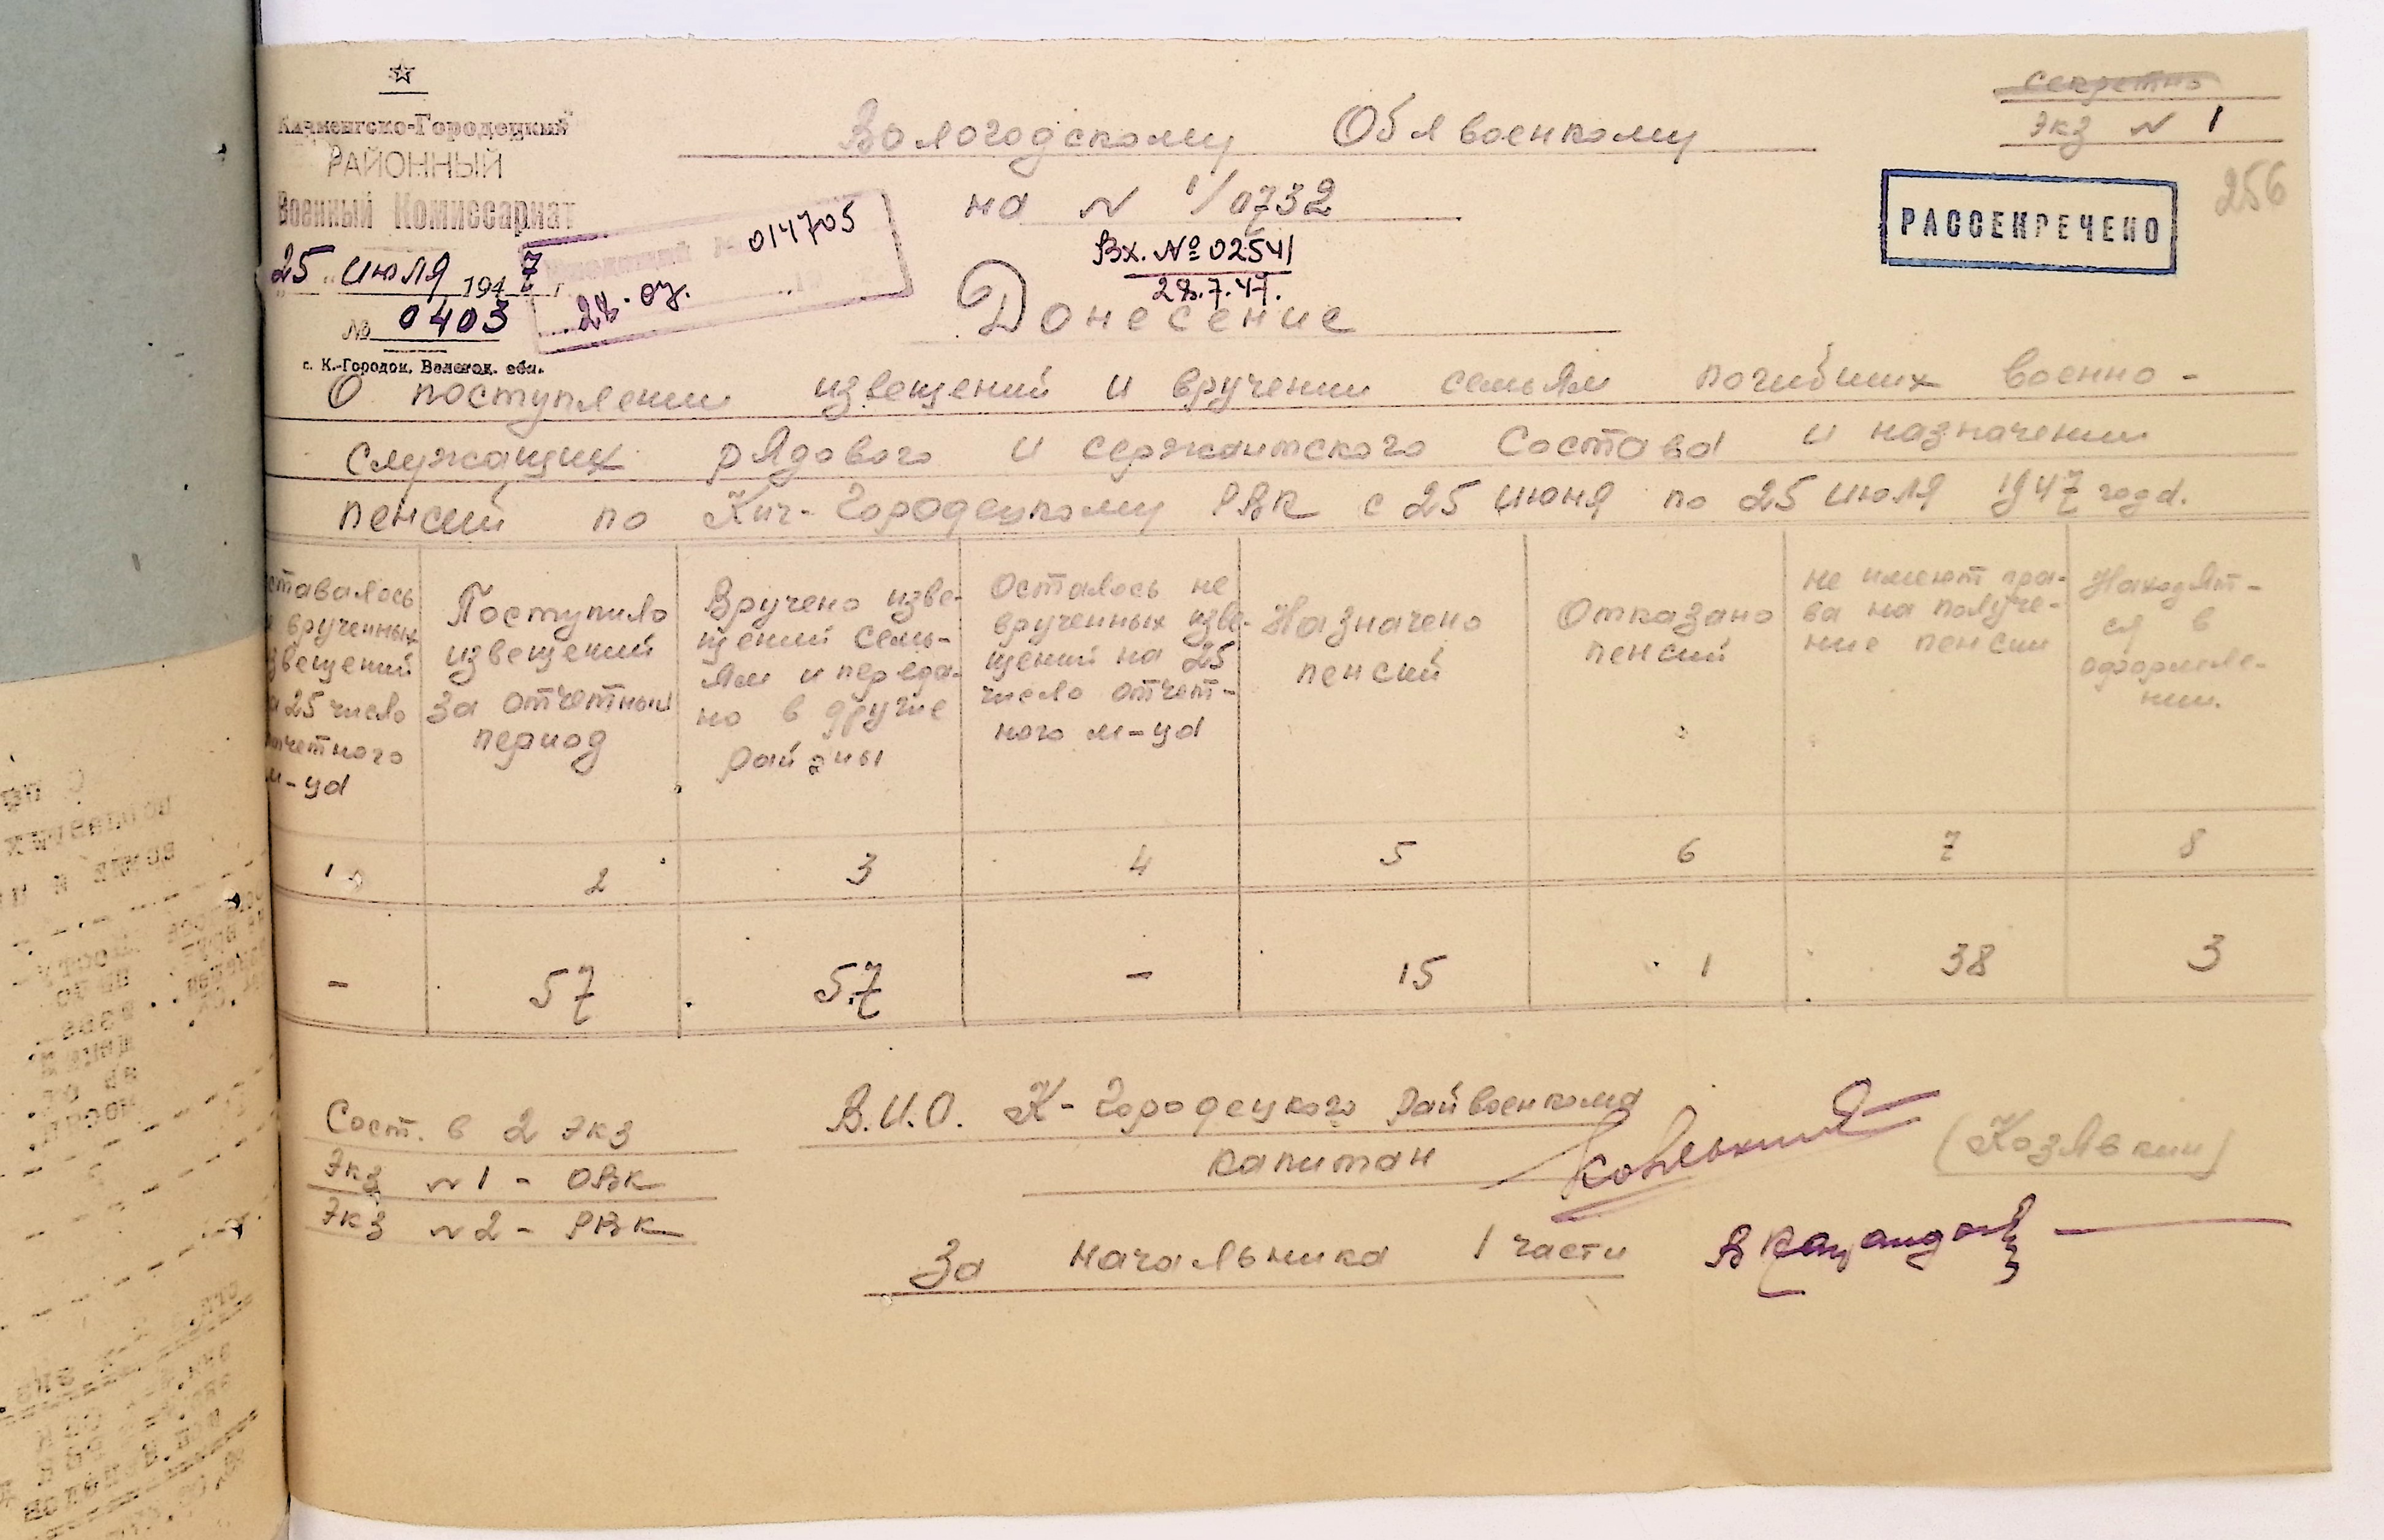 Кичменгско-Городецкий
РАЙОННЫЙ
Военный Комиссариат
25 июля 1947 г.
№ 0403
с. К.-Городок, Волегод. обл.
014705
28.07.
Секретно
Экз N 1
РАССЕКРЕЧЕНО
256
Вологодскому Облвоенкому
на N 1/0732
Вх. № 02541
28.7.47.
Донесение
О поступлении извещений и вручении семьям погибших военно-
служащих рядового и сержантского Состава и назначении
пенсий по Кич-Городецкому РВК с 25 июня по 25 июля 1947 года.
ставалось
врученных
звещений
а 25 число
тчетного
м-ца
Поступило
извещений
за отчетный
период
Вручено изве-
щений семь-
ям и переда-
но в другие
районы
Осталось не
врученных изве-
щений на 25
число отчет-
ного м-ца
Назначено
пенсий
Отказано
пенсий
не имеют пра-
ва на получе-
ние пенсии
Находят-
ся в
оформле-
нии.
1 2 3 4 5 6 7 8
- 57 57 - 15 1 38 3
Сост. в 2 экз
Экз N 1 - ОВК
Экз N 2 - РВК
В.И.О. К-Городецкого Райвоенкома
капитан
(Козявкин)
За начальника 1 части